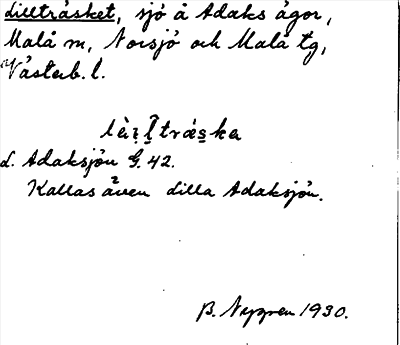 Lillträsket, sjö å Adaks ägor,
Malå sn, Norsjö och Malå tg,
Västerb. l.
L. Adaksjön G. 42.
Kallas även Lilla Adaksjön.
B. Nygren 1930.